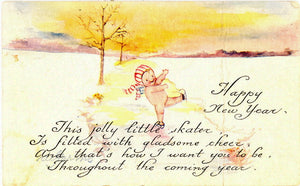 Happy
New Year.
This jolly little skater
Is filled with gladsome cheer,
And that's how I want you to be,
Throughout the coming year.